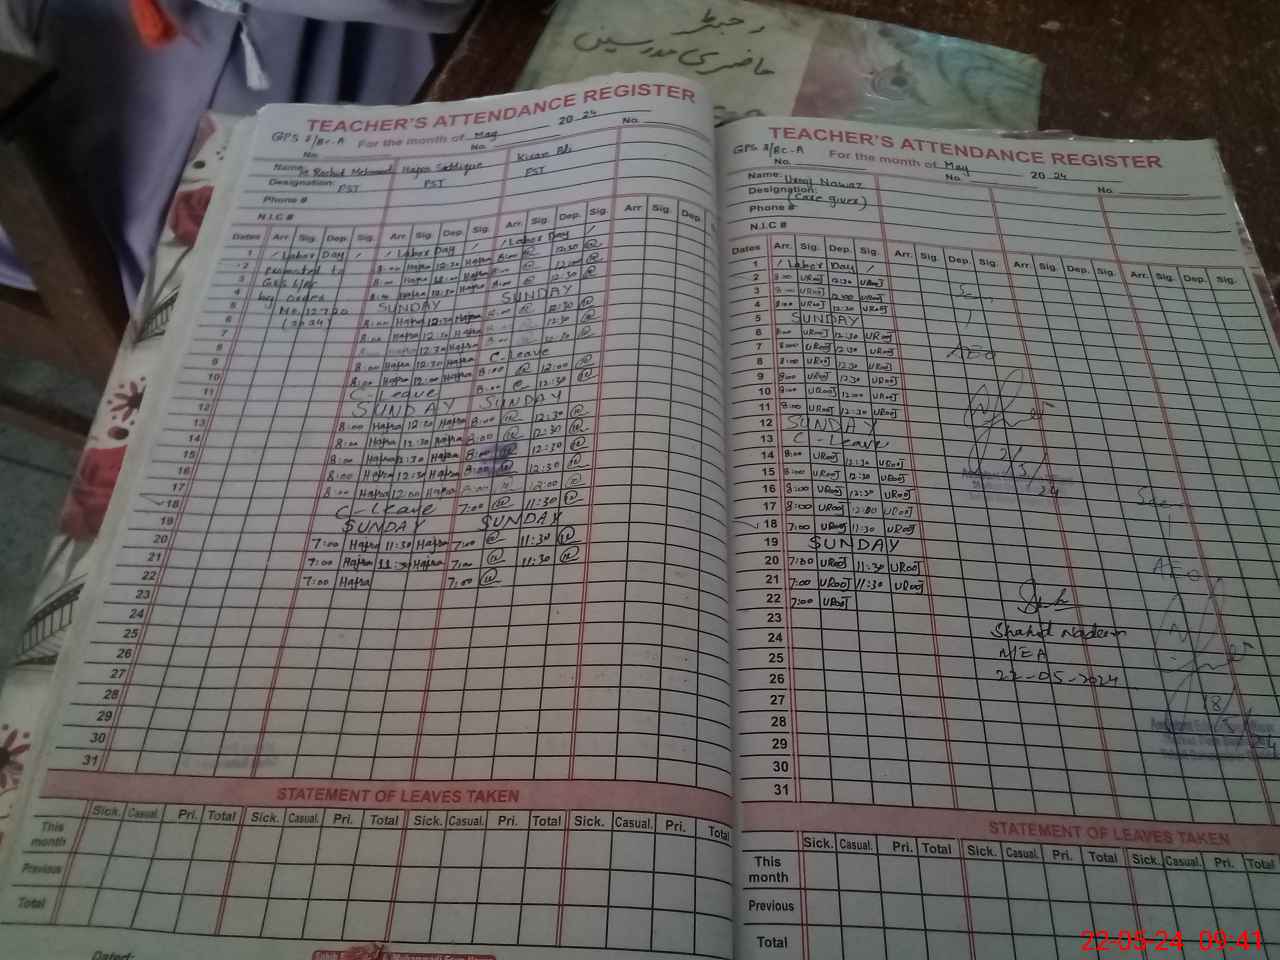 رجسٹر
حاضری مدرسین
TEACHER'S ATTENDANCE REGISTER
GPS 8/BC-A For the month of May 2024
No. No. No.
Name: Rashid Mehmood Hafsa Siddique Kiran Bibi
Designation: PST PST PST
Phone #
N.I.C #
Dates Arr. Sig. Dep. Sig. Arr. Sig. Dep. Sig. Arr. Sig. Dep. Sig. Arr. Sig. Dep.
1 / Labor Day / / Labor Day / / Labor Day /
2 promoted to 8:00 Hafsa 12:30 Hafsa 8:00 12:30
3 8:00 Hafsa 12:00 Hafsa 8:00 12:00
4 by order 8:00 Hafsa 12:30 Hafsa 8:00 12:30
5 SUNDAY SUNDAY
6 (2024) 8:00 Hafsa 12:30 Hafsa 12:30
7 8:00 Hafsa 12:30 Hafsa 12:30
8 Hafsa 12:30 Hafsa 12:30
9 8:00 Hafsa 12:30 Hafsa C-Leave
10 8:00 Hafsa 12:00 Hafsa 8:00 12:00
11 C-Leave 8:00 12:30
12 SUNDAY SUNDAY
13 8:00 Hafsa 12:30 Hafsa 8:00 12:30
14 8:00 Hafsa 12:30 Hafsa 8:00 12:30
15 8:00 Hafsa 12:30 Hafsa 8:00 12:30
16 8:00 Hafsa 12:30 Hafsa 8:00 12:30
17 8:00 Hafsa 12:00 Hafsa 12:00
18 C-Leave 7:00 11:30
19 SUNDAY SUNDAY
20 7:00 Hafsa 11:30 Hafsa 7:00 11:30
21 7:00 Hafsa 11:30 Hafsa 7:00 11:30
22 7:00 Hafsa 7:00
23
24
25
26
27
28
29
30
31
STATEMENT OF LEAVES TAKEN
Sick. Casual. Pri. Total Sick. Casual. Pri. Total Sick. Casual. Pri. Total Sick. Casual. Pri. Total
This month
Previous
Total
Dated:
TEACHER'S ATTENDANCE REGISTER
GPS 8/BC-A For the month of May 2024
No. No. No.
Name: Urooj Nawaz
Designation: (Care giver)
Phone #
N.I.C #
Dates Arr. Sig. Dep. Sig. Arr. Sig. Dep. Sig. Arr. Sig. Dep. Sig. Arr. Sig. Dep. Sig.
1 / Labor Day /
2 8:00 UROOJ 12:30 UROOJ
3 8:00 UROOJ 12:00 UROOJ
4 8:00 UROOJ 12:30 UROOJ
5 SUNDAY
6 8:00 UROOJ 12:30 UROOJ
7 8:00 UROOJ 12:30 UROOJ
8 8:00 UROOJ 12:30 UROOJ
9 8:00 UROOJ 12:30 UROOJ
10 8:00 UROOJ 12:00 UROOJ
11 8:00 UROOJ 12:30 UROOJ
12 SUNDAY
13 C-Leave
14 8:00 UROOJ 12:30 UROOJ
15 8:00 UROOJ 12:30 UROOJ
16 8:00 UROOJ 12:30 UROOJ
17 8:00 UROOJ 12:00 UROOJ
18 7:00 UROOJ 11:30 UROOJ
19 SUNDAY
20 7:00 UROOJ 11:30 UROOJ
21 7:00 UROOJ 11:30 UROOJ
22 7:00 UROOJ
23
24
25
26
27
28
29
30
31
AEO
Seen
AEO
Shahid Nadeem
MEA
22-05-2024
STATEMENT OF LEAVES TAKEN
Sick. Casual. Pri. Total Sick. Casual. Pri. Total Sick. Casual. Pri. Total
This month
Previous
Total
22-05-24 09:41